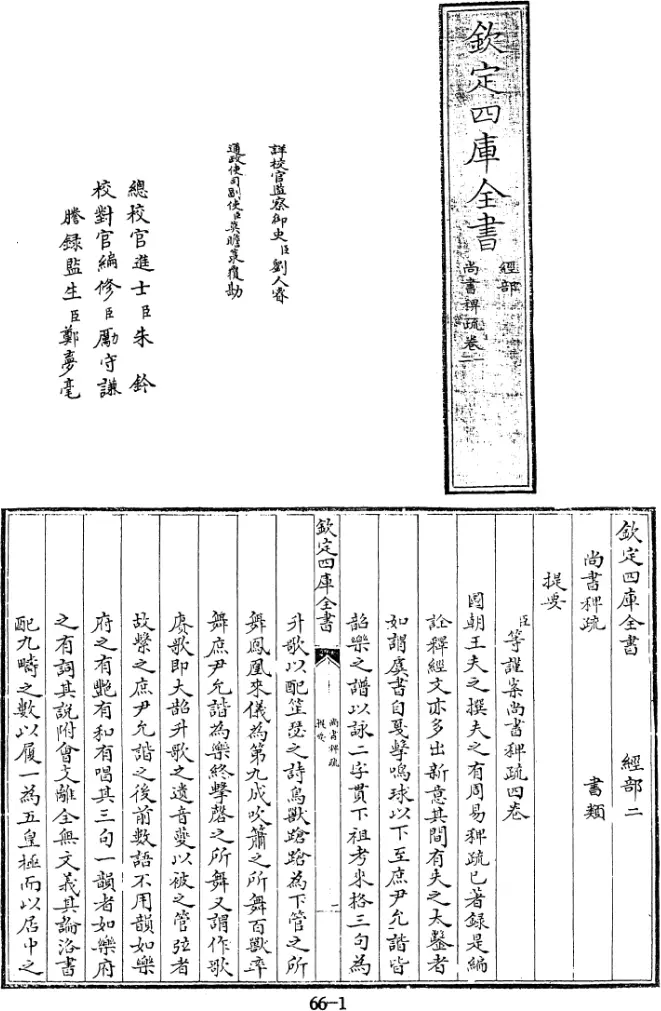 欽定四庫全書
經部
尚書稗疏卷一
詳校官監察御史臣劉人睿
通政使司副使臣莫瞻菉覆勘
總校官進士臣朱鈐
校對官編修臣勵守謙
謄錄監生臣鄭夢毫
欽定四庫全書 經部二
尚書稗疏 書類
提要
臣等謹案尚書稗疏四卷
國朝王夫之撰夫之有周易稗疏已著錄是編
詮釋經文亦多出新意其間有失之太鑿者
如謂虞書自戛擊鳴球以下至庶尹允諧皆
韶樂之譜以詠二字貫下祖考來格三句為
欽定四庫全書
尚書稗疏
提要
一
升歌以配笙瑟之詩鳥獸蹌蹌為下管之所
舞鳳凰來儀為第九成吹簫之所舞百獸率
舞庶尹允諧為樂終擊磬之所舞又謂作歌
賡歌即大韶升歌之遺音夔以被之管弦者
故繫之庶尹允諧之後前數語不用韻如樂
府之有艷有和有唱其三句一韻者如樂府
之有詞其說附會支離全無文義其論洛書
配九疇之數以履一為五皇極而以居中之
66-1